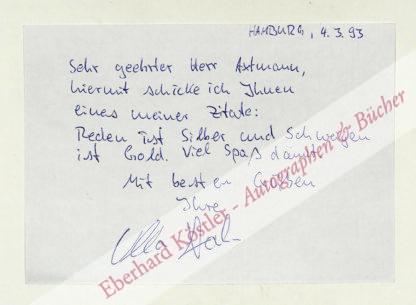 HAMBURG, 4.3.93
Sehr geehrter Herr Astmann,
hiermit schicke ich Ihnen
eines meiner Zitate:
Reden ist Silber und Schweigen
ist Gold. Viel Spaß damit.
Mit besten Grüßen
Ihre
Ulla Hahn
Eberhard Köstler - Autographen & Bücher